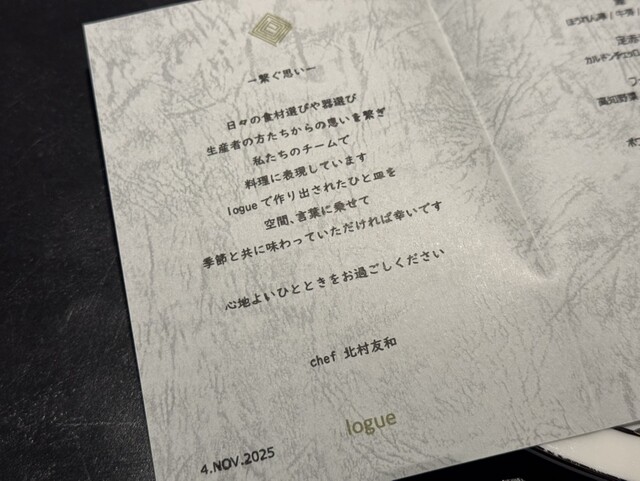 ー繋ぐ思いー
日々の食材選びや器選び
生産者の方たちからの思いを繋ぎ
私たちのチームで
料理に表現しています
logueで作り出されたひと皿を
空間、言葉に乗せて
季節と共に味わっていただければ幸いです
心地よいひとときをお過ごしください
chef 北村友和
logue
4.NOV.2025
ほうれん草 / 牛蒡 /
高知野菜